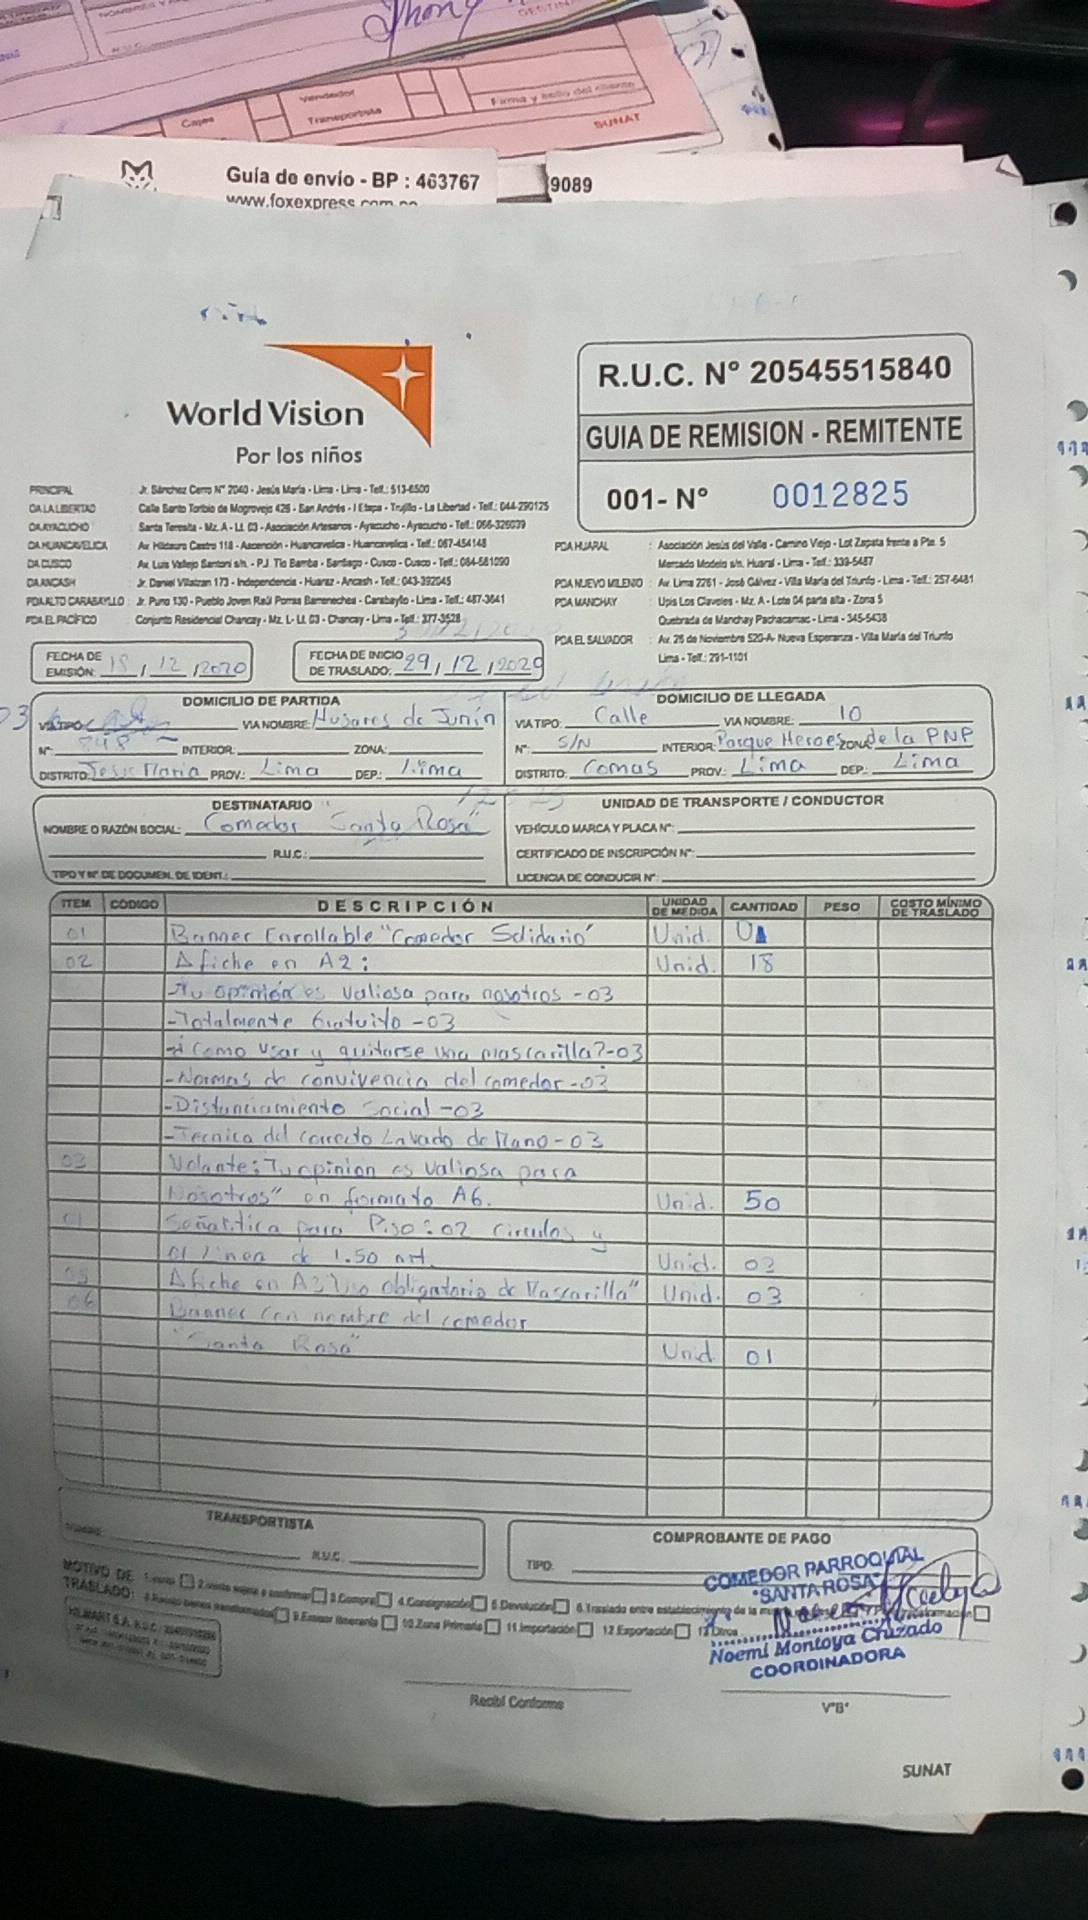 Jhony
Vendedor
Cajas
Transportista
Firma y sello del cliente
SUNAT
Guía de envío - BP : 463767
9089
www.foxexpress.com.pe
World Vision
Por los niños
R.U.C. N° 20545515840
GUIA DE REMISION - REMITENTE
001- N° 0012825
PRINCIPAL : Jr. Sánchez Cerro N° 2040 - Jesús María - Lima - Lima - Telf.: 513-6500
DA LA LIBERTAD : Calle Santo Toribio de Mogrovejo 426 - San Andrés - I Etapa - Trujillo - La Libertad - Telf.: 044-290125
DA AYACUCHO : Santa Teresita - Mz. A - Lt. 03 - Asociación Artesanos - Ayacucho - Ayacucho - Telf.: 066-326039
DA HUANCAVELICA : Av. Hildauro Castro 118 - Ascensión - Huancavelica - Huancavelica - Telf.: 067-454148
DA CUSCO : Av. Luis Vallejo Santoni s/n. - P.J. Tío Bamba - Santiago - Cusco - Cusco - Telf.: 084-581090
DA ANCASH : Jr. Daniel Villaizan 173 - Independencia - Huaraz - Ancash - Telf.: 043-392045
PDA ALTO CARABAYLLO : Jr. Puno 130 - Pueblo Joven Raúl Porras Barrenechea - Carabayllo - Lima - Telf.: 487-3641
PDA EL PACÍFICO : Conjunto Residencial Chancay - Mz. L - Lt. 03 - Chancay - Lima - Telf.: 377-3528
PDA HUARAL : Asociación Jesús del Valle - Camino Viejo - Lot Zapata frente a Pte. 5
Mercado Modelo s/n. Huaral - Lima - Telf.: 339-5487
PDA NUEVO MILENIO : Av. Lima 2261 - José Gálvez - Villa María del Triunfo - Lima - Telf.: 257-6481
PDA MANCHAY : Upis Los Claveles - Mz. A - Lote 04 parte alta - Zona 5
Quebrada de Manchay Pachacamac - Lima - 345-5438
PDA EL SALVADOR : Av. 26 de Noviembre 520-A- Nueva Esperanza - Villa María del Triunfo
Lima - Telf.: 291-1101
FECHA DE EMISIÓN: 18 / 12 / 2020
FECHA DE INICIO DE TRASLADO: 29 / 12 / 2020
DOMICILIO DE PARTIDA
VIA TIPO: VIA NOMBRE: Husares de Junín
N°: 848 INTERIOR: ZONA:
DISTRITO: Jesus Maria PROV.: Lima DEP.: Lima
DOMICILIO DE LLEGADA
VIA TIPO: Calle VIA NOMBRE: 10
N°: S/N INTERIOR: Parque Heroes ZONA: de la PNP
DISTRITO: Comas PROV.: Lima DEP.: Lima
DESTINATARIO
NOMBRE O RAZÓN SOCIAL: Comedor "Santa Rosa"
R.U.C.:
TIPO Y N° DE DOCUMEN. DE IDENT.:
UNIDAD DE TRANSPORTE / CONDUCTOR
VEHÍCULO MARCA Y PLACA N°:
CERTIFICADO DE INSCRIPCIÓN N°:
LICENCIA DE CONDUCIR N°:
ITEM CÓDIGO DESCRIPCIÓN UNIDAD DE MEDIDA CANTIDAD PESO COSTO MÍNIMO DE TRASLADO
01 Banner Enrollable "Comedor Solidario" Unid. 01
02 Afiche en A2: Unid. 18
-Tu opinión es valiosa para nosotros -03
-Totalmente Gratuito -03
-¿Como usar y quitarse una mascarilla?-03
-Normas de convivencia del comedor -03
-Distanciamiento Social -03
-Tecnica del correcto Lavado de Mano -03
03 Volante: Tu opinion es valiosa para
Nosotros" en formato A6. Unid. 50
Señalitica para Piso: 02 circulos y
01 Linea de 1.50 mt. Unid. 03
05 Afiche en A3 "Uso obligatorio de Mascarilla" Unid. 03
06 Banner con nombre del comedor
"Santa Rosa" Unid 01
TRANSPORTISTA
R.U.C.:
COMPROBANTE DE PAGO
TIPO:
MOTIVO DE TRASLADO: 1.Venta 2.Venta sujeta a confirmar 3.Compra 4.Consignación 5.Devolución 6.Traslado entre establecimiento de la
9.Emisor Itinerante 10.Zona Primaria 11.Importación 12.Exportación 13.Otros
COMEDOR PARROQUIAL
"SANTA ROSA"
Noemí Montoya Cruzado
COORDINADORA
Recibí Conforme
V°B°
SUNAT